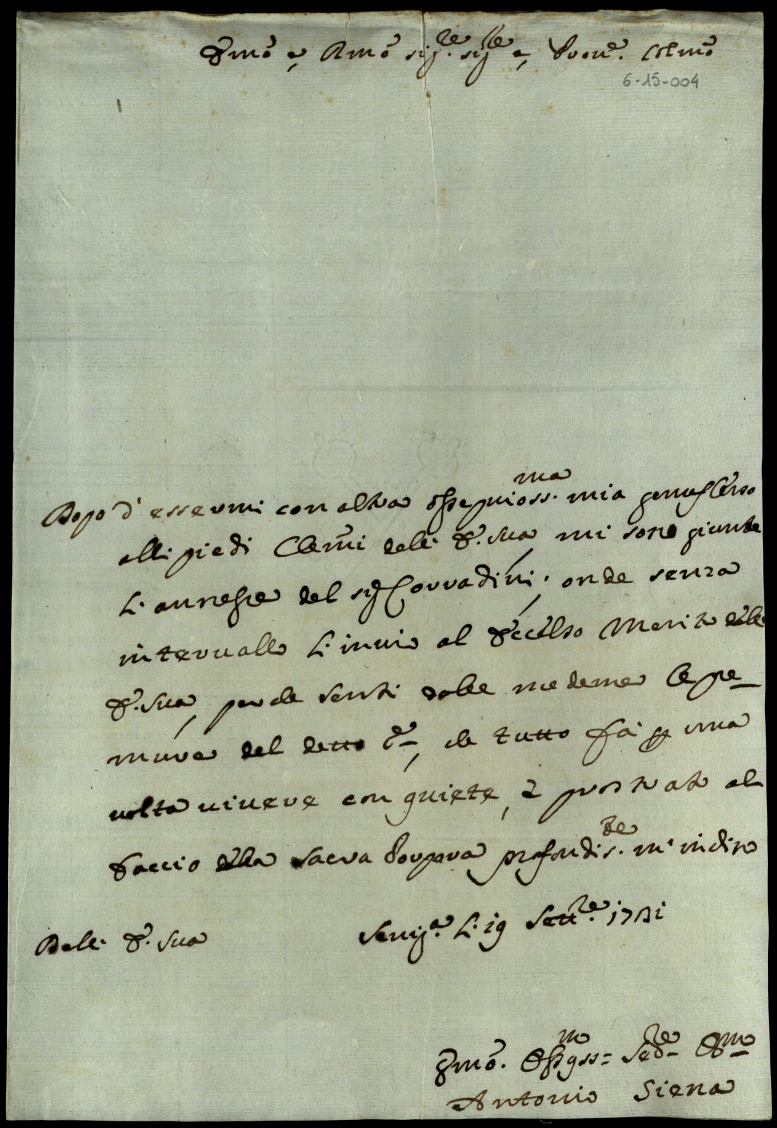 Emo e, Rmo sigre. sigre e, Pron͞e. Colmo
6-15-004
Dopo d'essermi con altra ossequioss.ma mia genuflesso
alli piedi Clemi dell' E. sua, mi sono giunte
l'annesse del sig Corradini, onde senza
intervallo l'invio al Eccelso Merito dell
E. sua, perche senti dalle medeme le pre-
mure del detto che tutto fà p una
volta vivere con quiete, è prostrato al
baccio della sacra Porpora profondis.te m'inchino
Dell' E. sua
Senig.a li 19 Settre. 1731
Antonio Siena